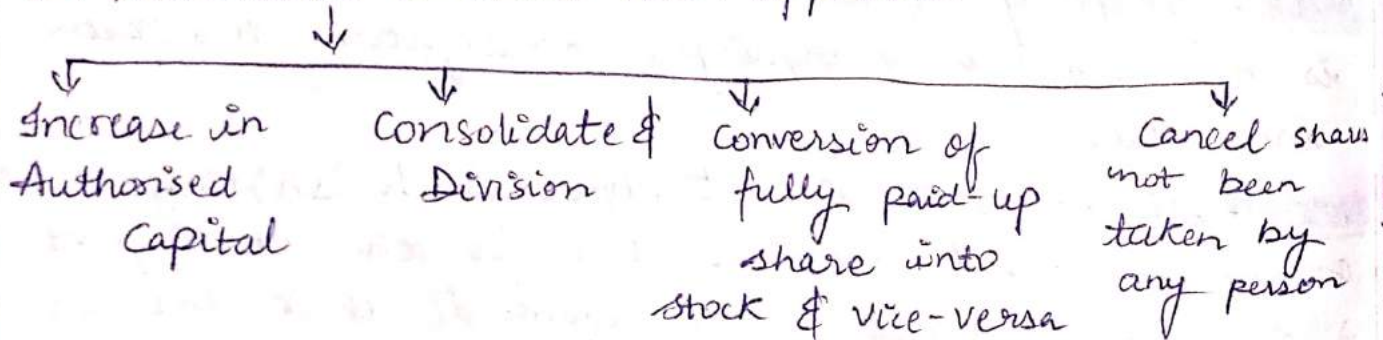 Increase in
Authorised
Capital
Consolidate &
Division
Conversion of
fully paid-up
share into
stock & vice-versa
Cancel
not been
taken by
any person